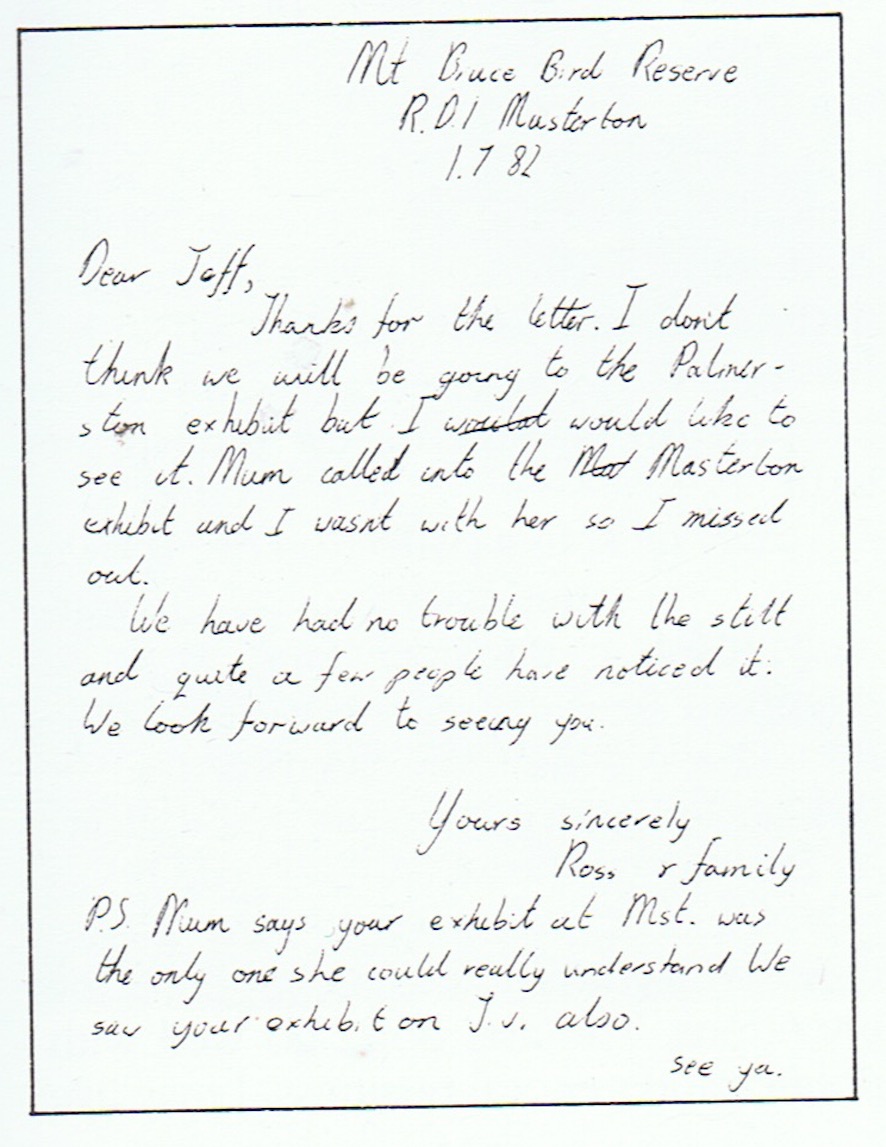 Mt Bruce Bird Reserve
R.D.1 Masterton
1.7 82
Dear Jeff,
Thanks for the letter. I dont
think we will be going to the Palmer-
ston exhibit but I would like to
see it. Mum called into the Masterton
exhibit and I wasnt with her so I missed
out.
We have had no trouble with the stilt
and quite a few people have noticed it.
We look forward to seeing you.
Yours sincerely
Ross & family
P.S. Mum says your exhibit at Mst. was
the only one she could really understand We
saw your exhibit on T.V. also.
see ya.